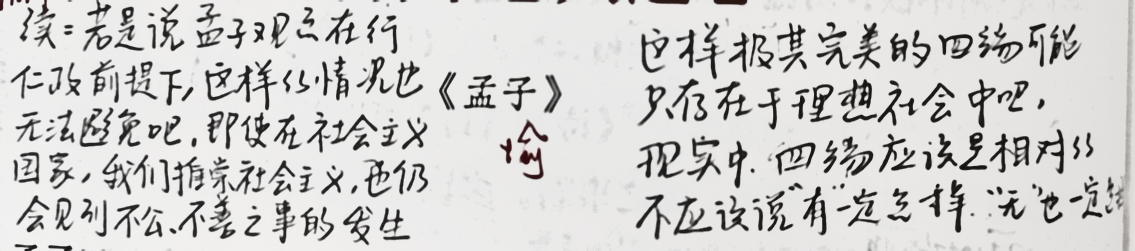 续：若是说孟子观点在行
仁政前提下，这样的情况也
无法避免吧，即使在社会主义
国家，我们推崇社会主义，也仍
会见到不公、不善之事的发生
《孟子》
愉
这样极其完美的四端可能
只存在于理想社会中吧，
现实中.四端应该是相对的
不应该说"有"一定怎样."无"也一定